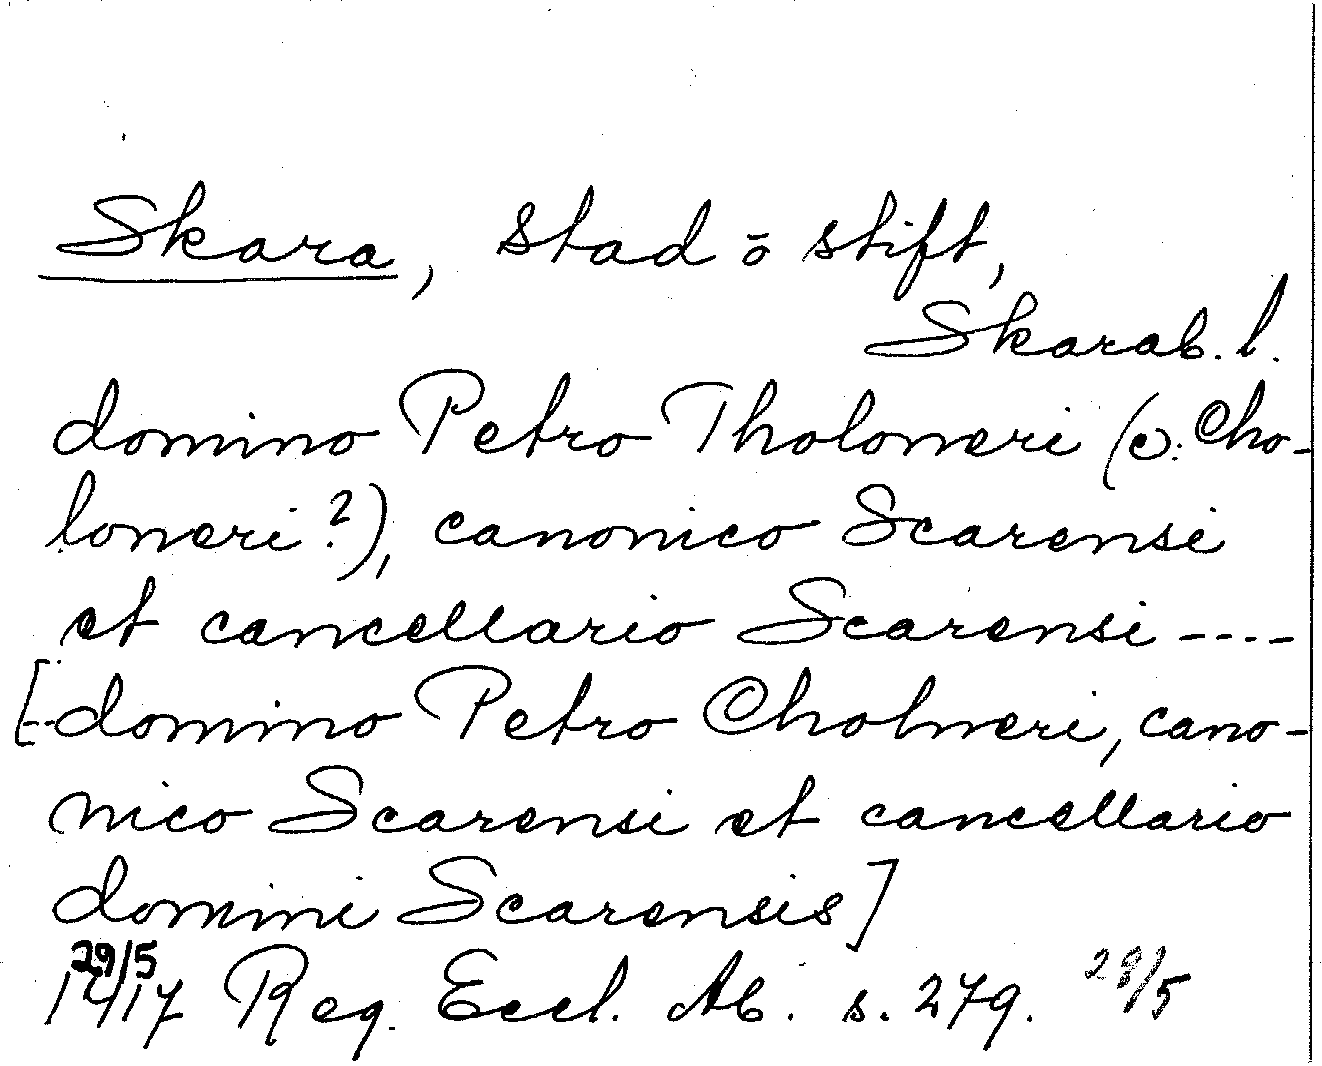 Skara, stad ō stift,
Skarab. l.
domino Petro Tholomeri (e: Cho-
lomeri?), canonico Scarensi
et cancellario Scarensi ----
[--domino Petro Cholmeri, cano-
nico Scarensi et cancellario
domini Scarensis]
29/5
1417 Reg. Eccl. Ab. s. 279. 28/5